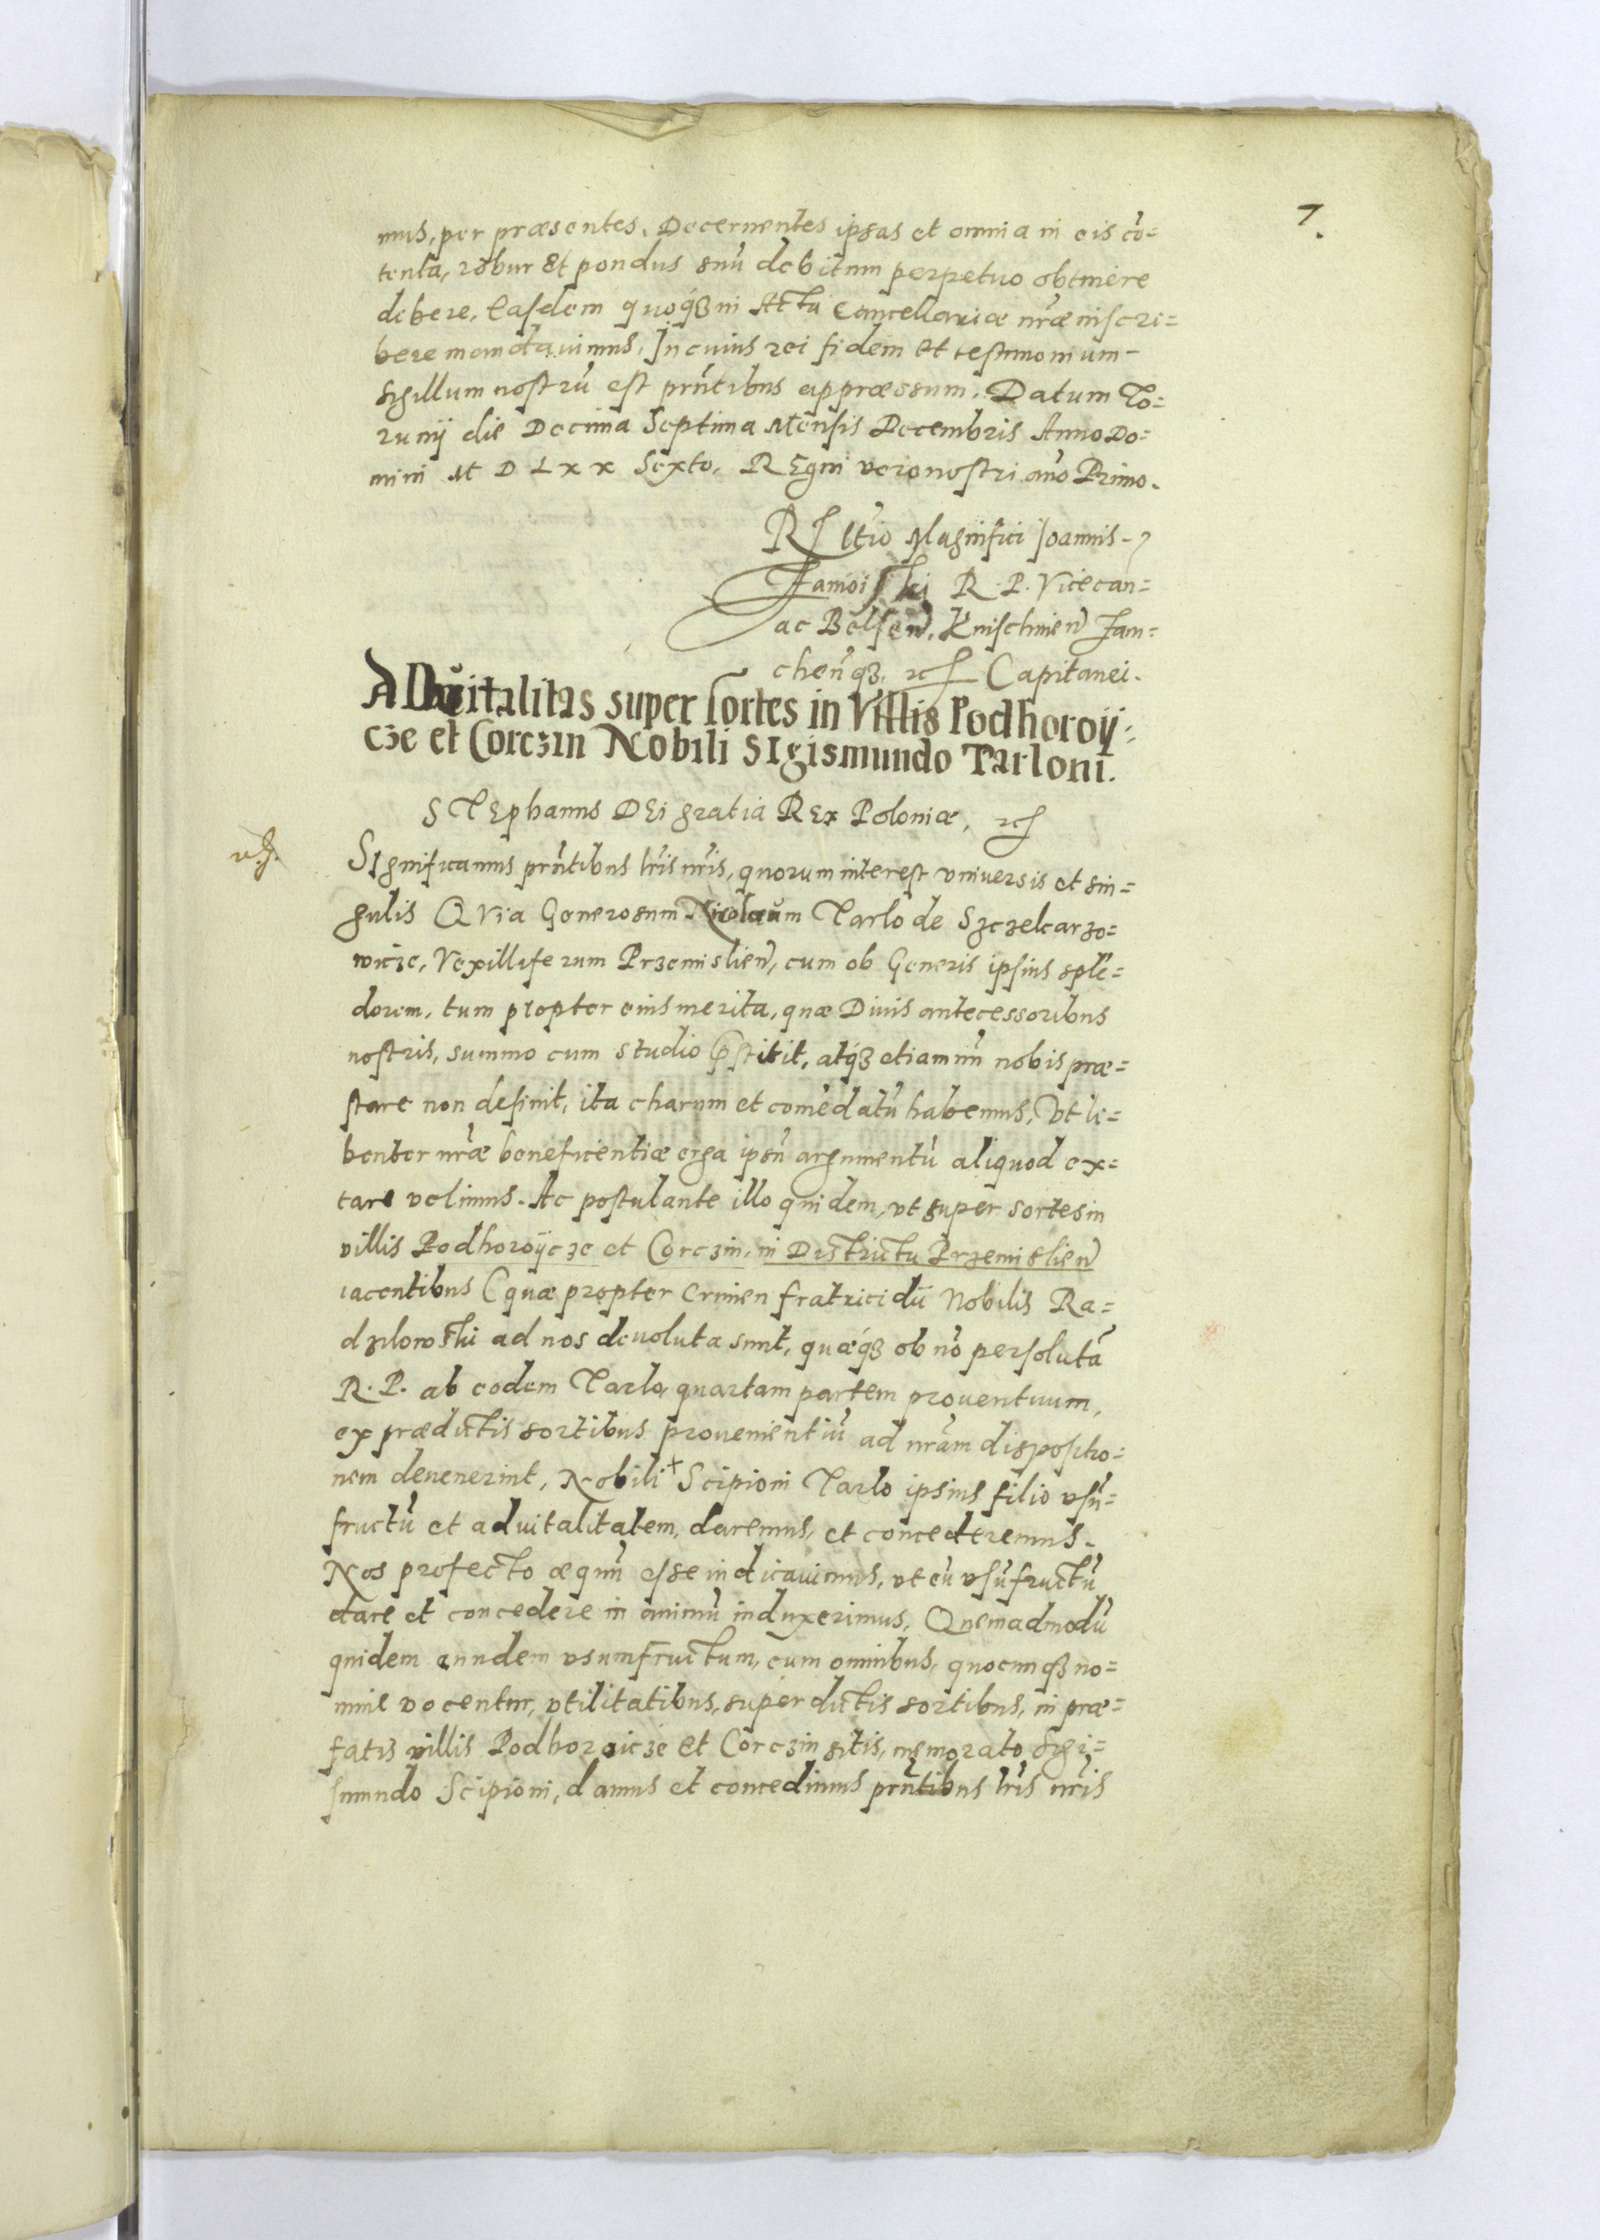 7.
mus, per præsentes. Decernentes ipsas et omnia in eis cō=
tenta, robur et pondus suū debitum perpetuo obtinere
debere. Easdem quoq́ꝫ in Acta Cancellariæ nr̃æ inscri=
bere mandauimus. In cuius rei fidem et testimonium –
sigillum nostrū est pnt̃ibus appræssum. Datum To=
runij die Decima Septima Mensis Decembris Anno Do=
mini M D L x x Sexto. REgni vero nostri año Primo.
Rltio Magnifici Joannis –
Zamoiski R. P. Vicecan=
ac Belsen̄, Knischinen̄ Zam=
chen̄qꝫ, etc Capitanei.
ADuitalitas super sortes in Villis Podhoroÿ=
cze et Corczin Nobili SIgismundo Tarloni.
STEphanus DEi gratia REx Poloniæ, etc
SIgnificamus pnt̃ibus lr̃is nr̃is, quorum interest vniuersis et sin=
gulis QVia Generosum Nicolaum Tarlo de Szczekarzo=
wicze, Vexilliferum Przemislien̄, cum ob Generis ipsius splē=
dorem, tum propter eius merita, quæ Diuis antecessoribus
nostris, summo cum studio p̄stitit, atq́ꝫ etiamnū nobis præ=
stare non desinit, ita charum et com̄edatū habemus, Vt li=
benter nr̃æ beneficentiæ erga ipsū argumentū aliquod ex=
tare velimus. Ac postulante illo quidem, vt super sortes in
villis Podhoroÿcze et Corczin, in Districtu Przemislien̄
iacentibus (quæ propter crimen fratricidij Nobilis Ra=
dziłowski ad nos deuoluta sunt, quæq́ꝫ ob nō persolutā
R. P. ab eodem Tarlo quartam partem prouentuum,
ex prædictis sortibus prouenientiū ad nr̃am dispositio=
nem deuenerint, Nobili + Scipioni Tarlo ipsius filio vsū=
fructū et aduitalitatem, daremus, et concederemus.
Nos profecto æquū esse indicauimus, vt eū vsūfructū
dare et concedere in animū induxerimus. Quemadmodū
quidem eundem vsumfructum, cum omnibus, quocunqꝫ no=
mine vocentur, vtilitatibus, super dictis sortibus, in præ=
fatis villis Podhoroicze et Corczin sitis, memorato Sigi=
smundo Scipioni, damus et concedimus pnt̃ibus lr̃is nr̃is